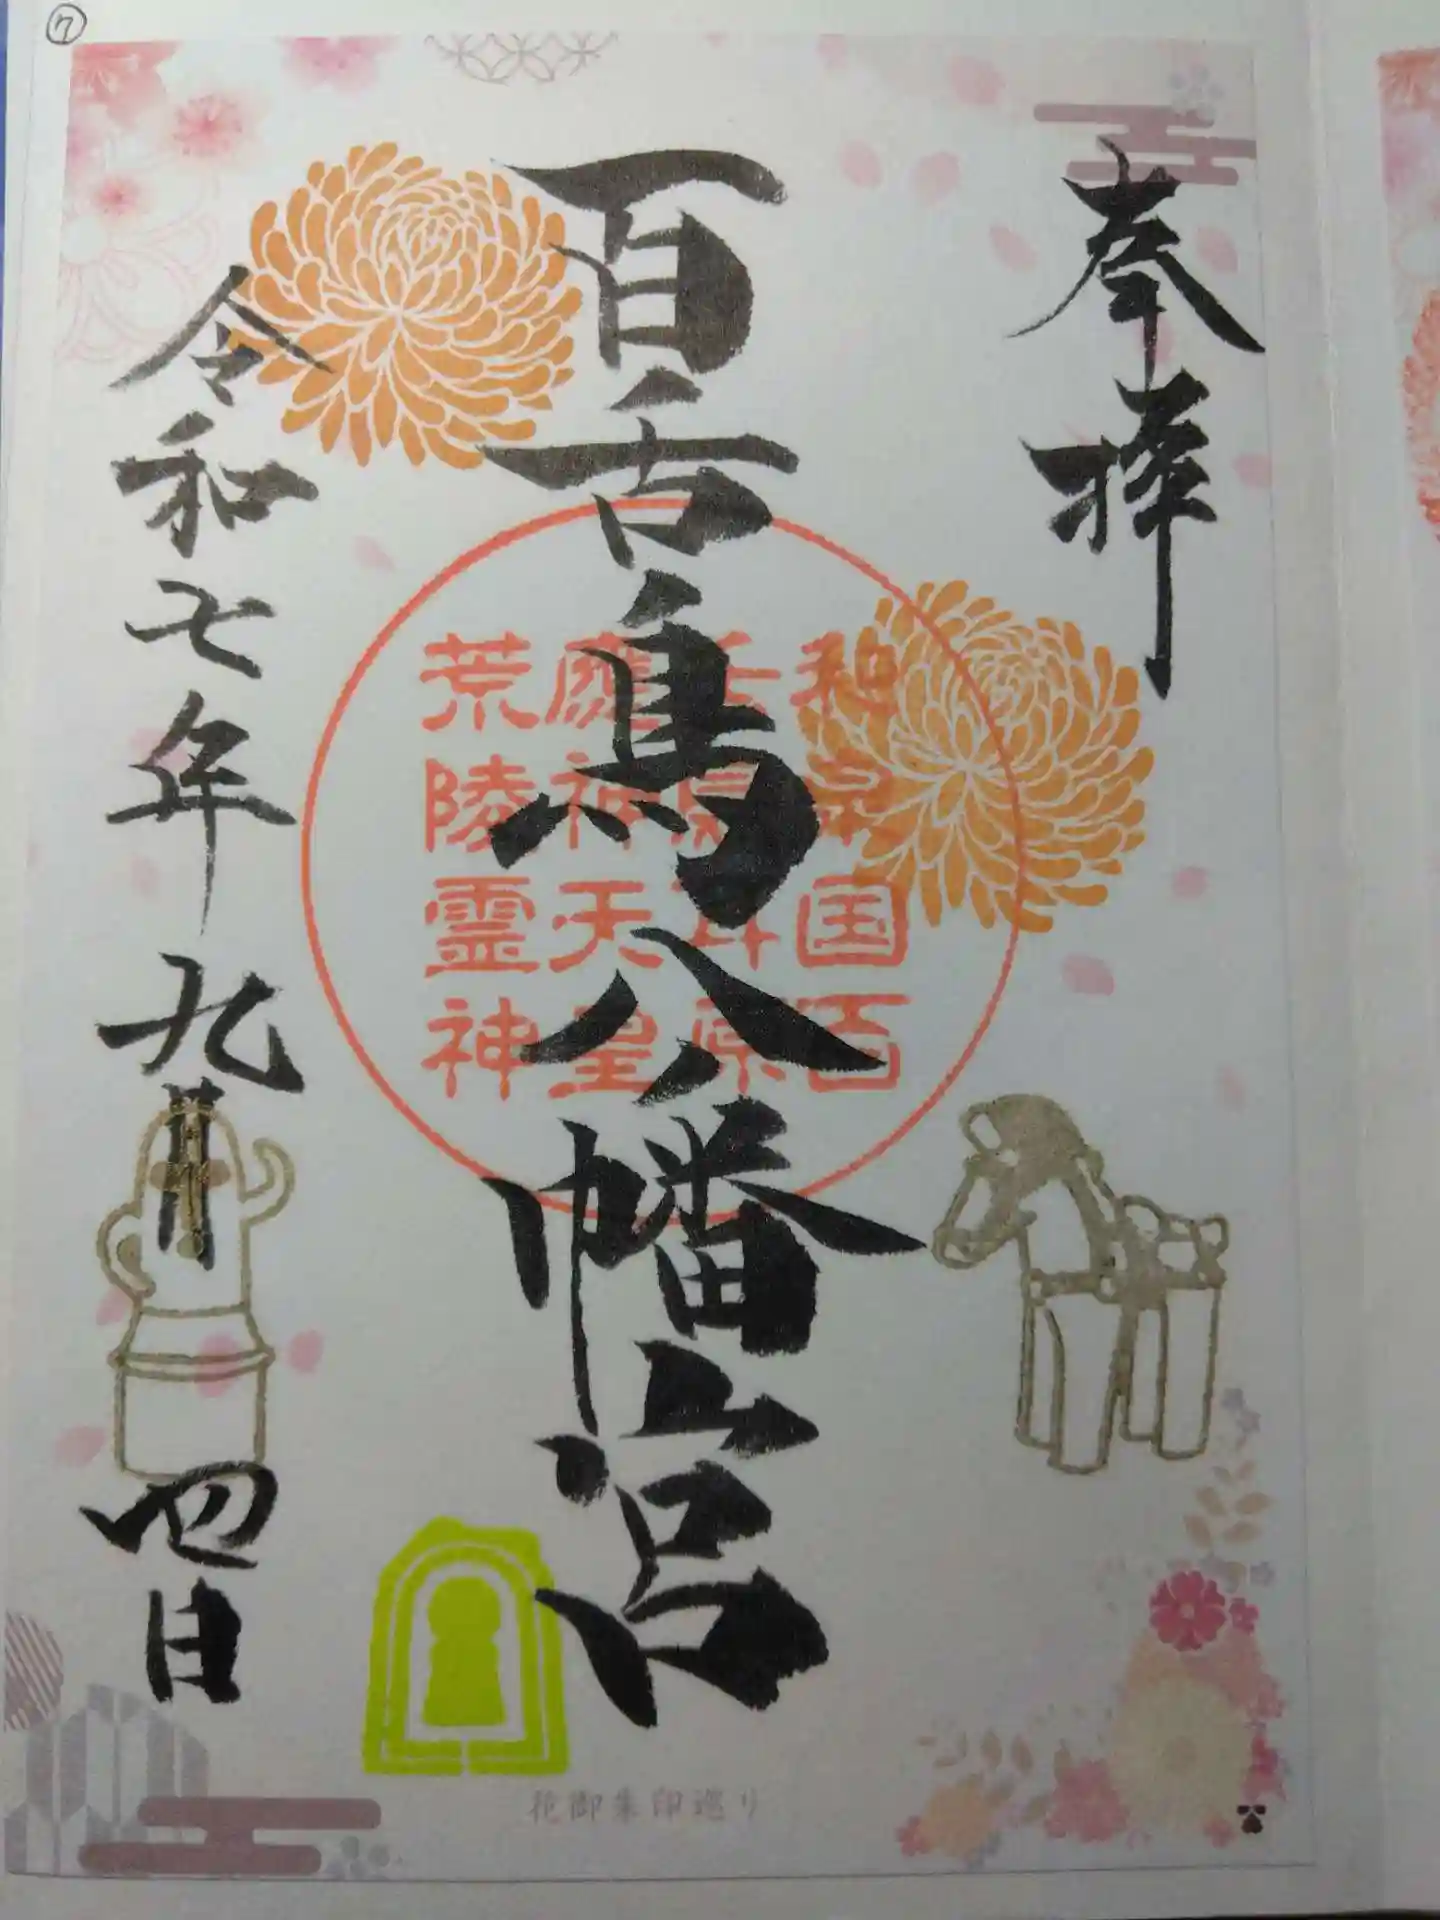 ⑦
奉拝
百舌鳥八幡宮
和泉国百
舌鳥耳原
應神天皇
荒陵霊神
令和七年九月四日
花御朱印巡り